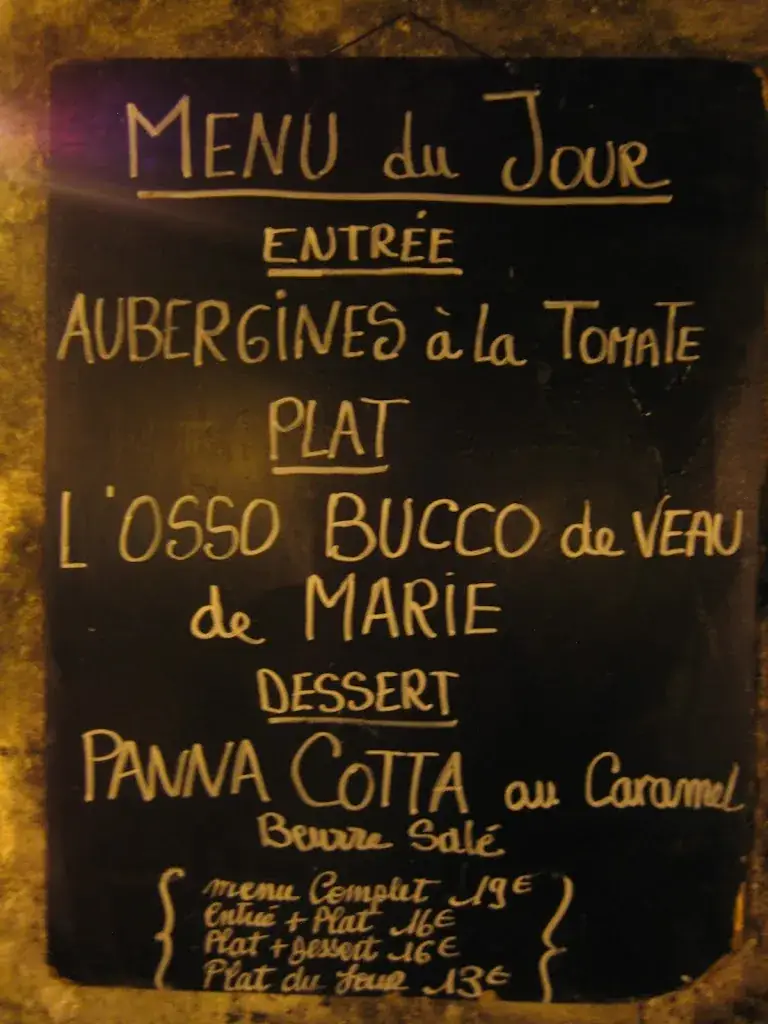 MENU du JOUR
ENTRÉE
AUBERGINES à la TOMATE
PLAT
L'OSSO BUCCO de VEAU
de MARIE
DESSERT
PANNA COTTA au Caramel
Beurre Salé
menu Complet 19€
Entrée + Plat 16€
Plat + Dessert 16€
Plat du Jour 13€